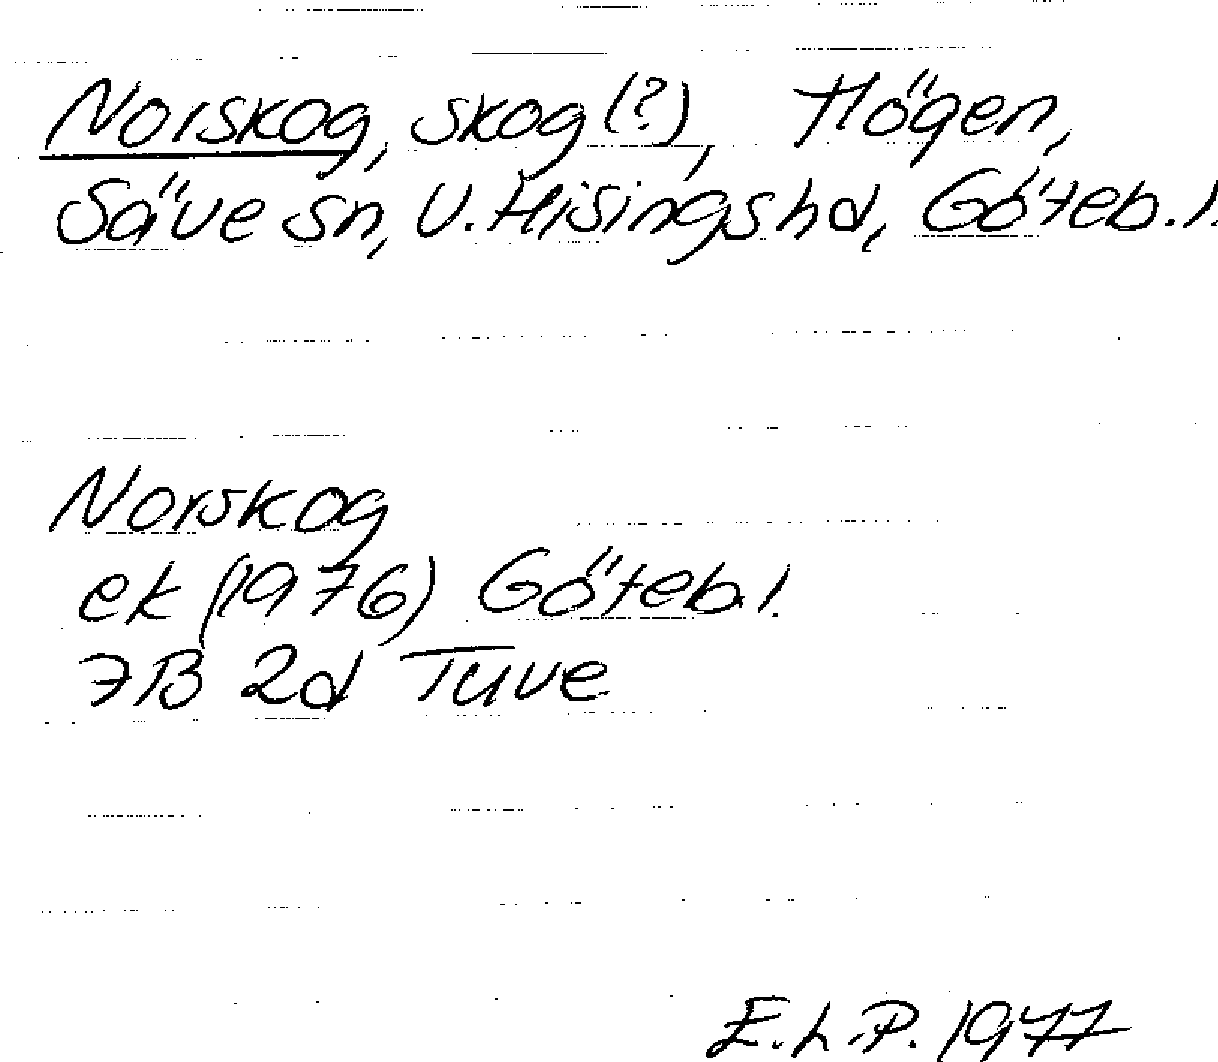 Norskog, skog (?), Högen,
Säve sn, V. Hisings hd, Göteb. l.
Norskog
ek (1976) Göteb. l.
7B 2d Tuve
E.L.P. 1977